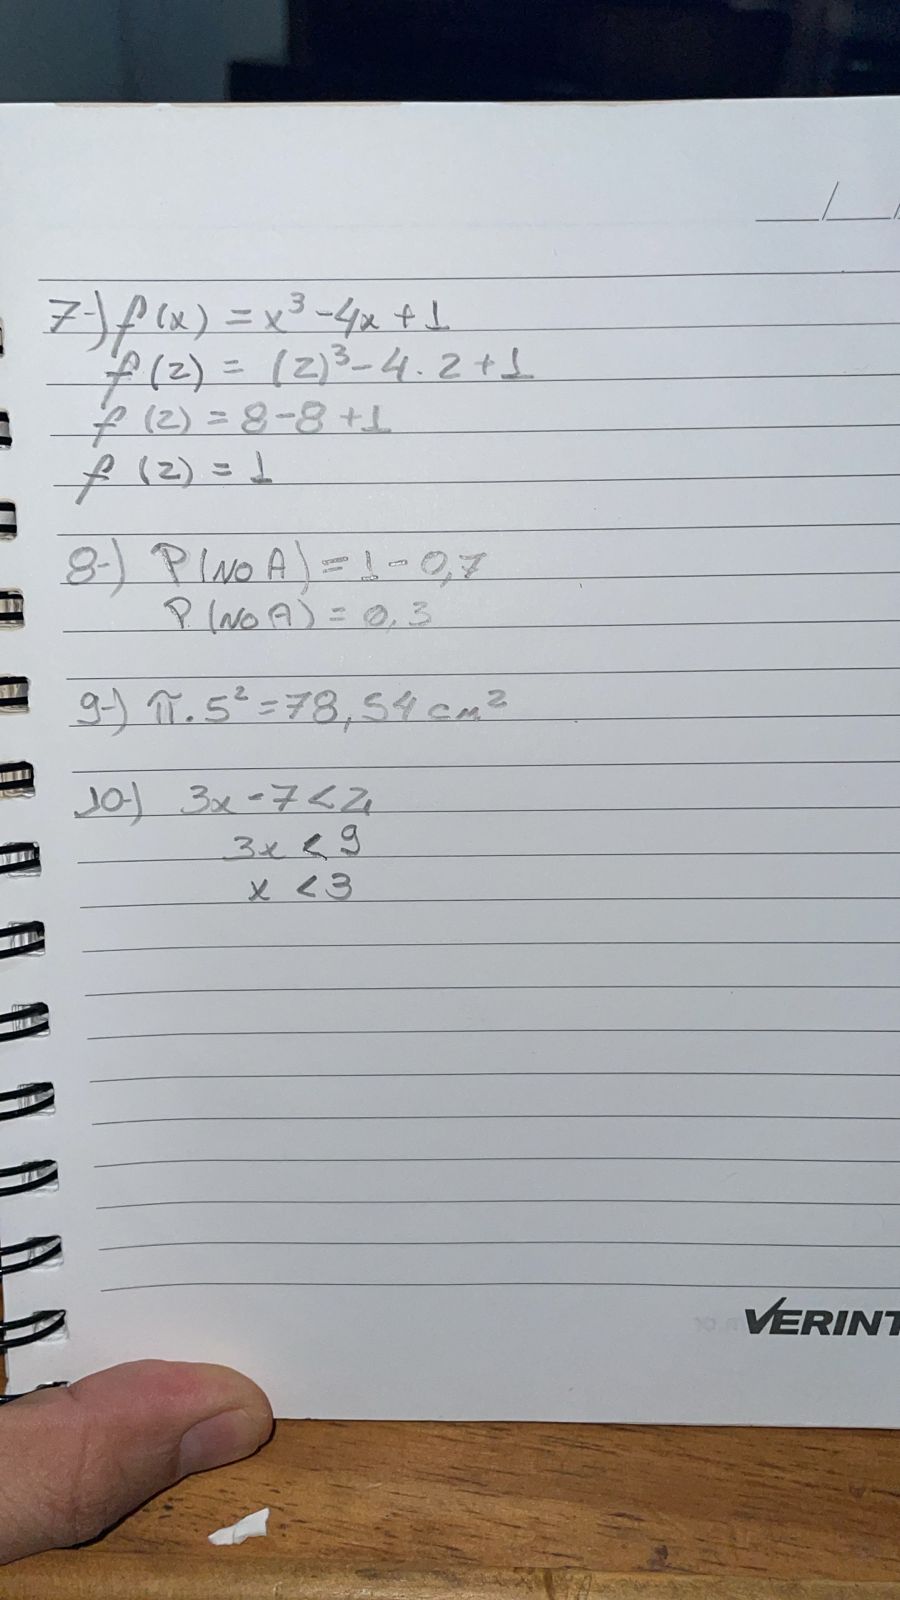 __/__/
7-) f(x) = x³ - 4x + 1
f(2) = (2)³ - 4 . 2 + 1
f (2) = 8 - 8 + 1
f (2) = 1
8-) P(NO A) = 1 - 0,7
P(NO A) = 0,3
9-) π . 5² = 78,54 cm²
10-) 3x - 7 < 2
3x < 9
x < 3
VERINT